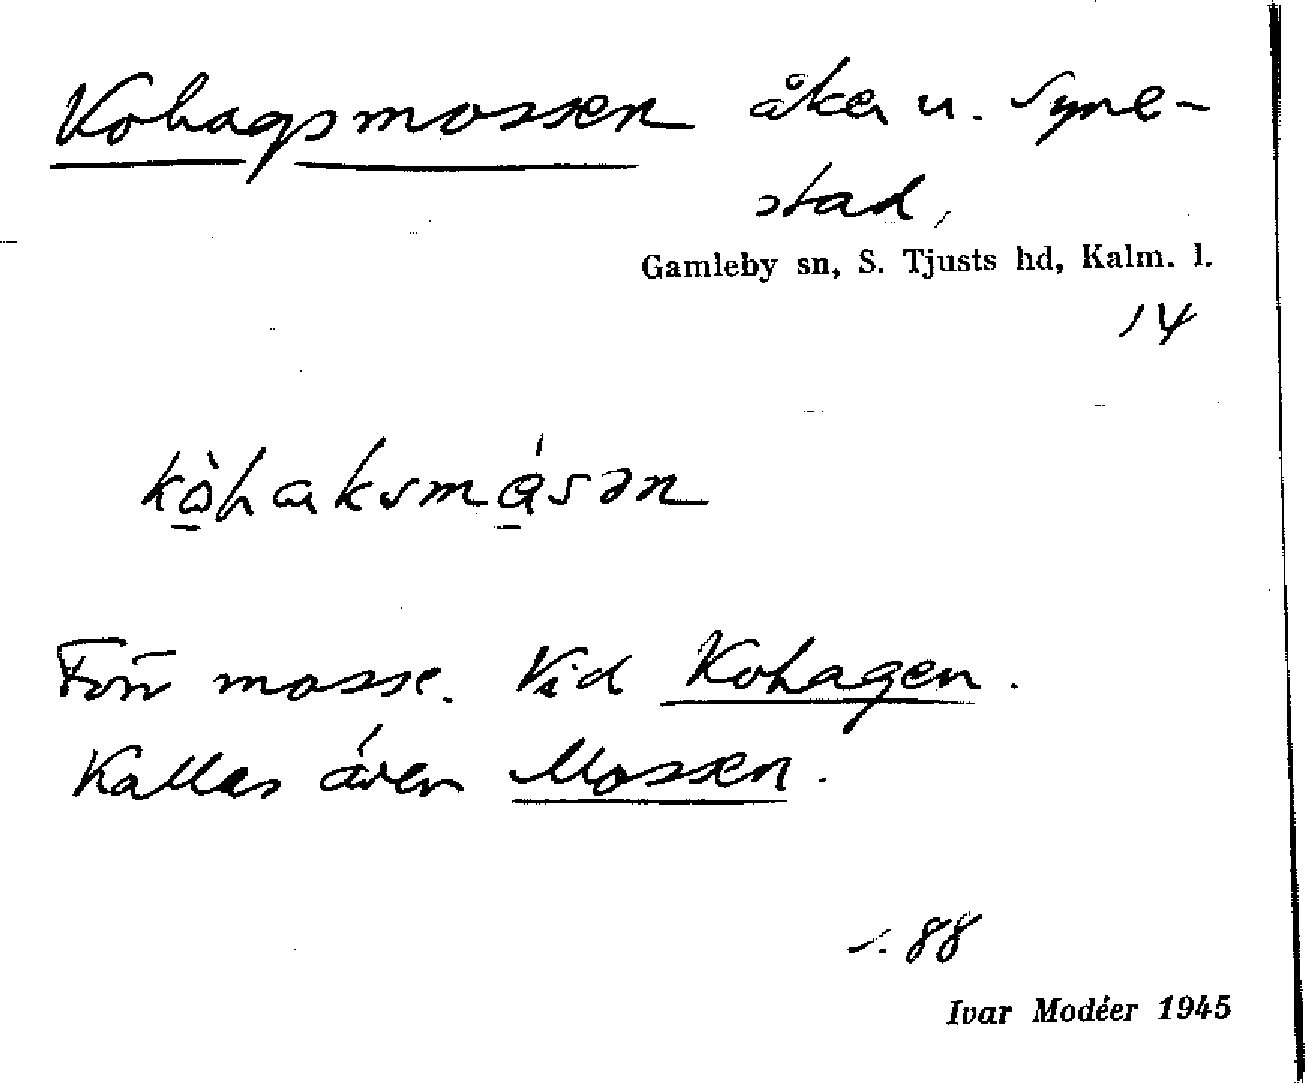 Kohagsmossen åker u. Syne-
stad,
Gamleby sn, S. Tjusts hd, Kalm. l.
14
kòhaksmásən
Förr mosse. Vid Kohagen.
Kallas även Mossen.
s. 88
Ivar Modéer 1945